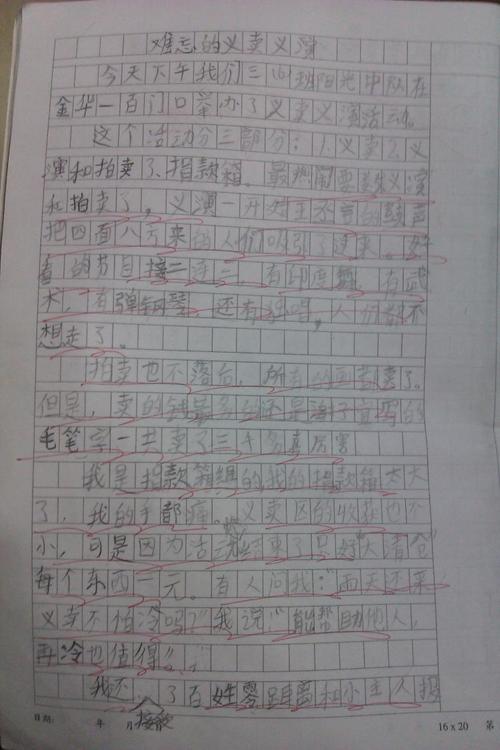 难忘的义卖义演
今天下午我们三(4)班阳光中队在
金华一百门口举办了义卖义演活动。
这个活动分三部分:1、义卖2、义
演和拍卖了、捐款箱。最热闹要数义演
和拍卖了,义演一开始王不言的鼓声
把四面八方来的人们吸引了过来。好
看的节目接二连三,有印度舞,有武
术,有弹钢琴,还有独唱,人们都不
想走了。
拍卖也不落后,所有的画都卖了。
但是,卖的钱最多的还是海子宜写的
毛笔字一共卖了三千多真厉害
我是捐款箱组的我的捐款箱太大
了,我的手都痛。义卖区的收获也不
小,可是因为活动快结束了只好“大清仓”
每个东西一元。有人问我:“雨天还来
义卖不怕冷吗?”我说:“能帮助他人,
再冷也值得!”
我还接受了百姓零距离和小主人报
日期: 年 月
16×20 第